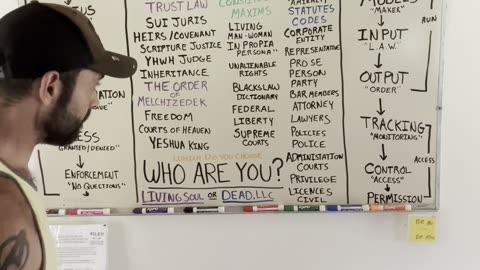 TRUST LAW
SUI JURIS
HEIRS/COVENANT
SCRIPTURE JUSTICE
YHWH JUDGE
INHERITANCE
THE ORDER
OF
MELCHIZEDEK
FREEDOM
COURTS OF HEAVEN
YESHUA KING
MAXIMS
LIVING
MAN-WOMAN
IN PROPIA
PERSONA
UNALIENABLE
RIGHTS
BLACKSLAW
DICTIONARY
FEDERAL
LIBERTY
SUPREME
COURTS
STATUTES
CODES
CORPORATE
ENTITY
REPRESENTATIVE
PRO SE
PERSON
PARTY
BAR MEMBERS
ATTORNEY
LAWYERS
POLICIES
POLICE
ADMINISTRATION
COURTS
PRIVILEGE
LICENCES
CIVIL
DO YOU CHOOSE
WHO ARE YOU?
LIVING SOUL OR DEAD, LLC
"MAKER"
RUN
INPUT
"L.A.W."
OUTPUT
"ORDER"
TRACKING
"MONITORING"
ACCESS
CONTROL
"ACCESS"
PERMISSION
GRANTED/DENIED"
ENFORCEMENT
"NO QUESTIONS"